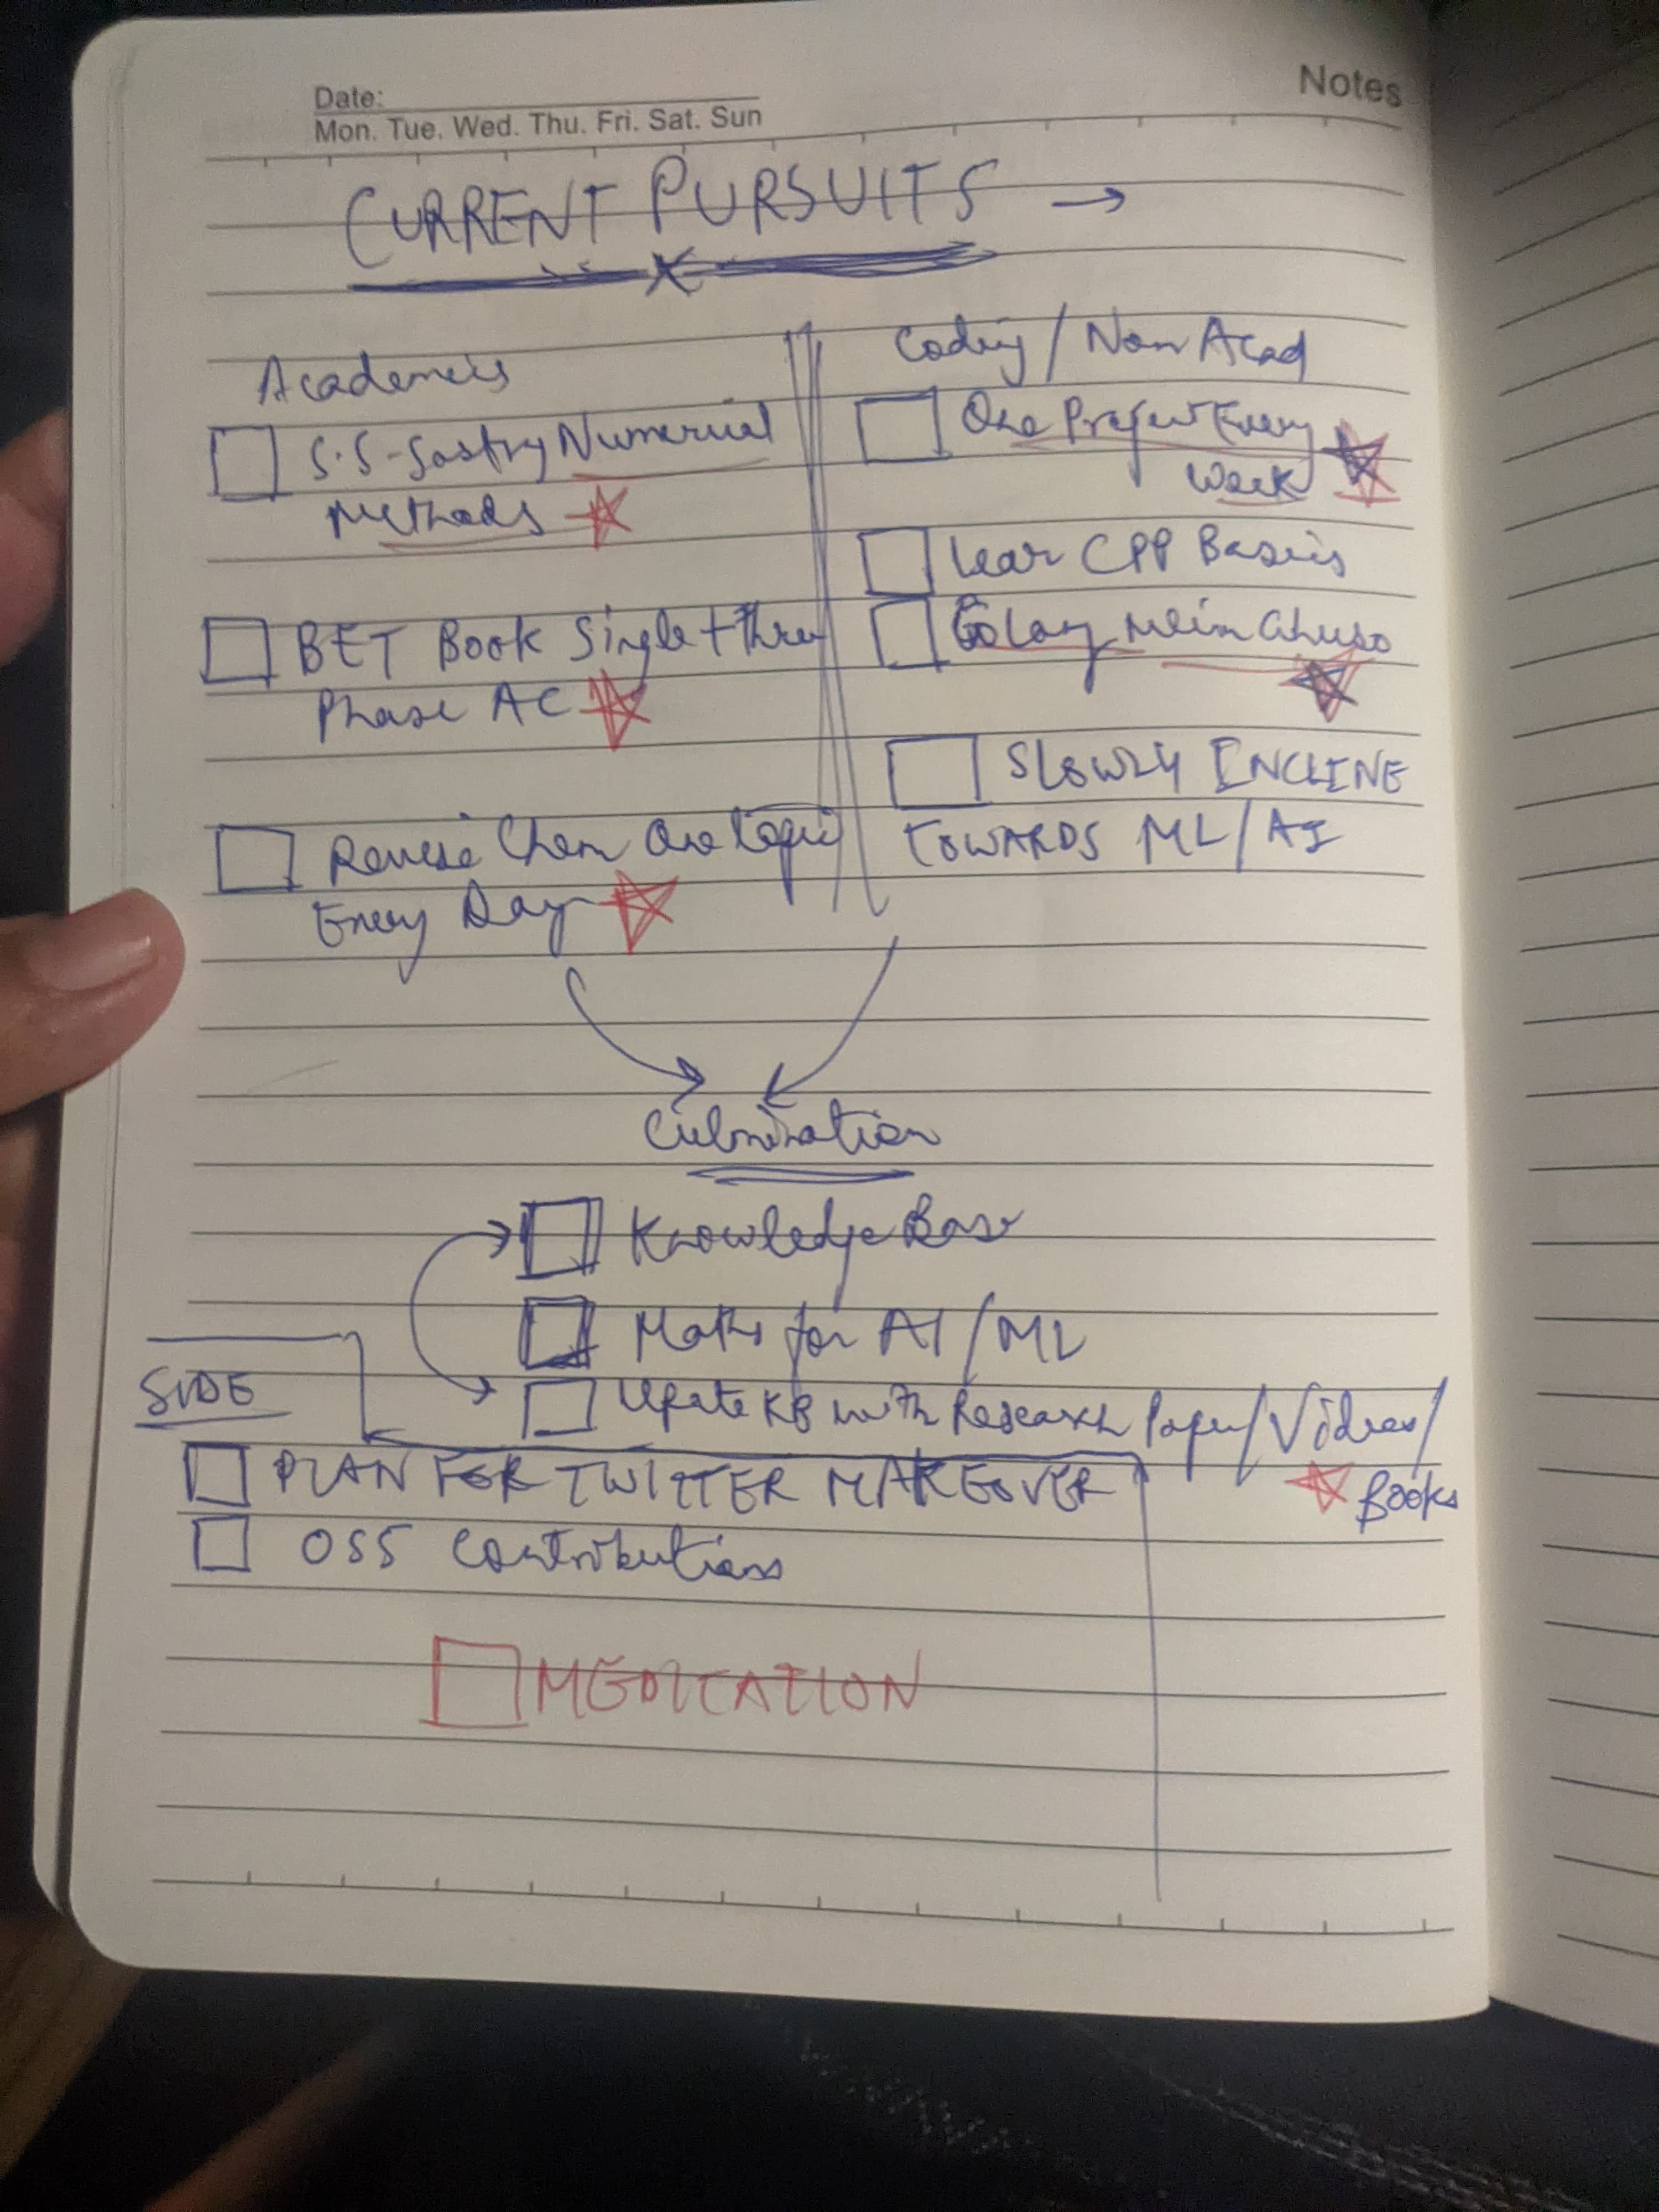 Notes
Date:
Mon. Tue. Wed. Thu. Fri. Sat. Sun
CURRENT PURSUITS →
Academics
S.S-Sastry Numerical
Methods
BET Book Single + Three
Phase AC
Revise Chem One Topic
Every Day
Coding / Non Acad
One Project Every
Week
Lear CPP Basics
GoLang mein Ghuso
SLOWLY INCLINE
TOWARDS ML/AI
Culmination
Knowledge Base
Maths for AI/ML
Update KB with Research Paper/Videos/
Books
SIDE
PLAN FOR TWITTER MAKEOVER
OSS Contributions
MEDICATION